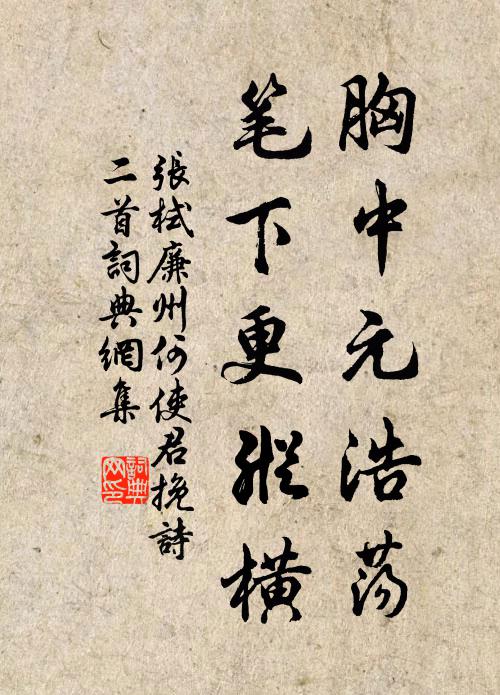 胸中元浩荡
笔下更縱横
張栻廉州何使君挽詩
二首詞典網集
詞典
网印